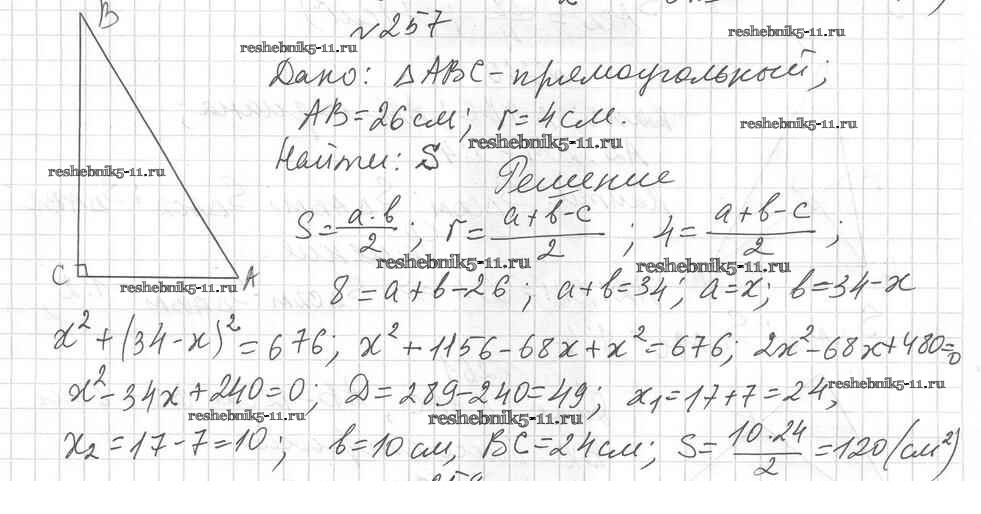 B
№257
reshebnik5-11.ru
reshebnik5-11.ru
Дано: △ABC - прямоугольный;
AB = 26 см; r = 4 см.
reshebnik5-11.ru
reshebnik5-11.ru
Найти: S
reshebnik5-11.ru
Решение
S = a·b/2; r = (a+b-c)/2; 4 = (a+b-c)/2;
reshebnik5-11.ru
reshebnik5-11.ru
C A
reshebnik5-11.ru
8 = a+b-26; a+b=34; a=x; b=34-x
x²+(34-x)²=676; x²+1156-68x+x²=676; 2x²-68x+480=0
x²-34x+240=0; D=289-240=49; x₁=17+7=24,
reshebnik5-11.ru
reshebnik5-11.ru
reshebnik5-11.ru
x₂=17-7=10; b=10 см, BC=24 см; S= 10·24/2 =120 (см²)